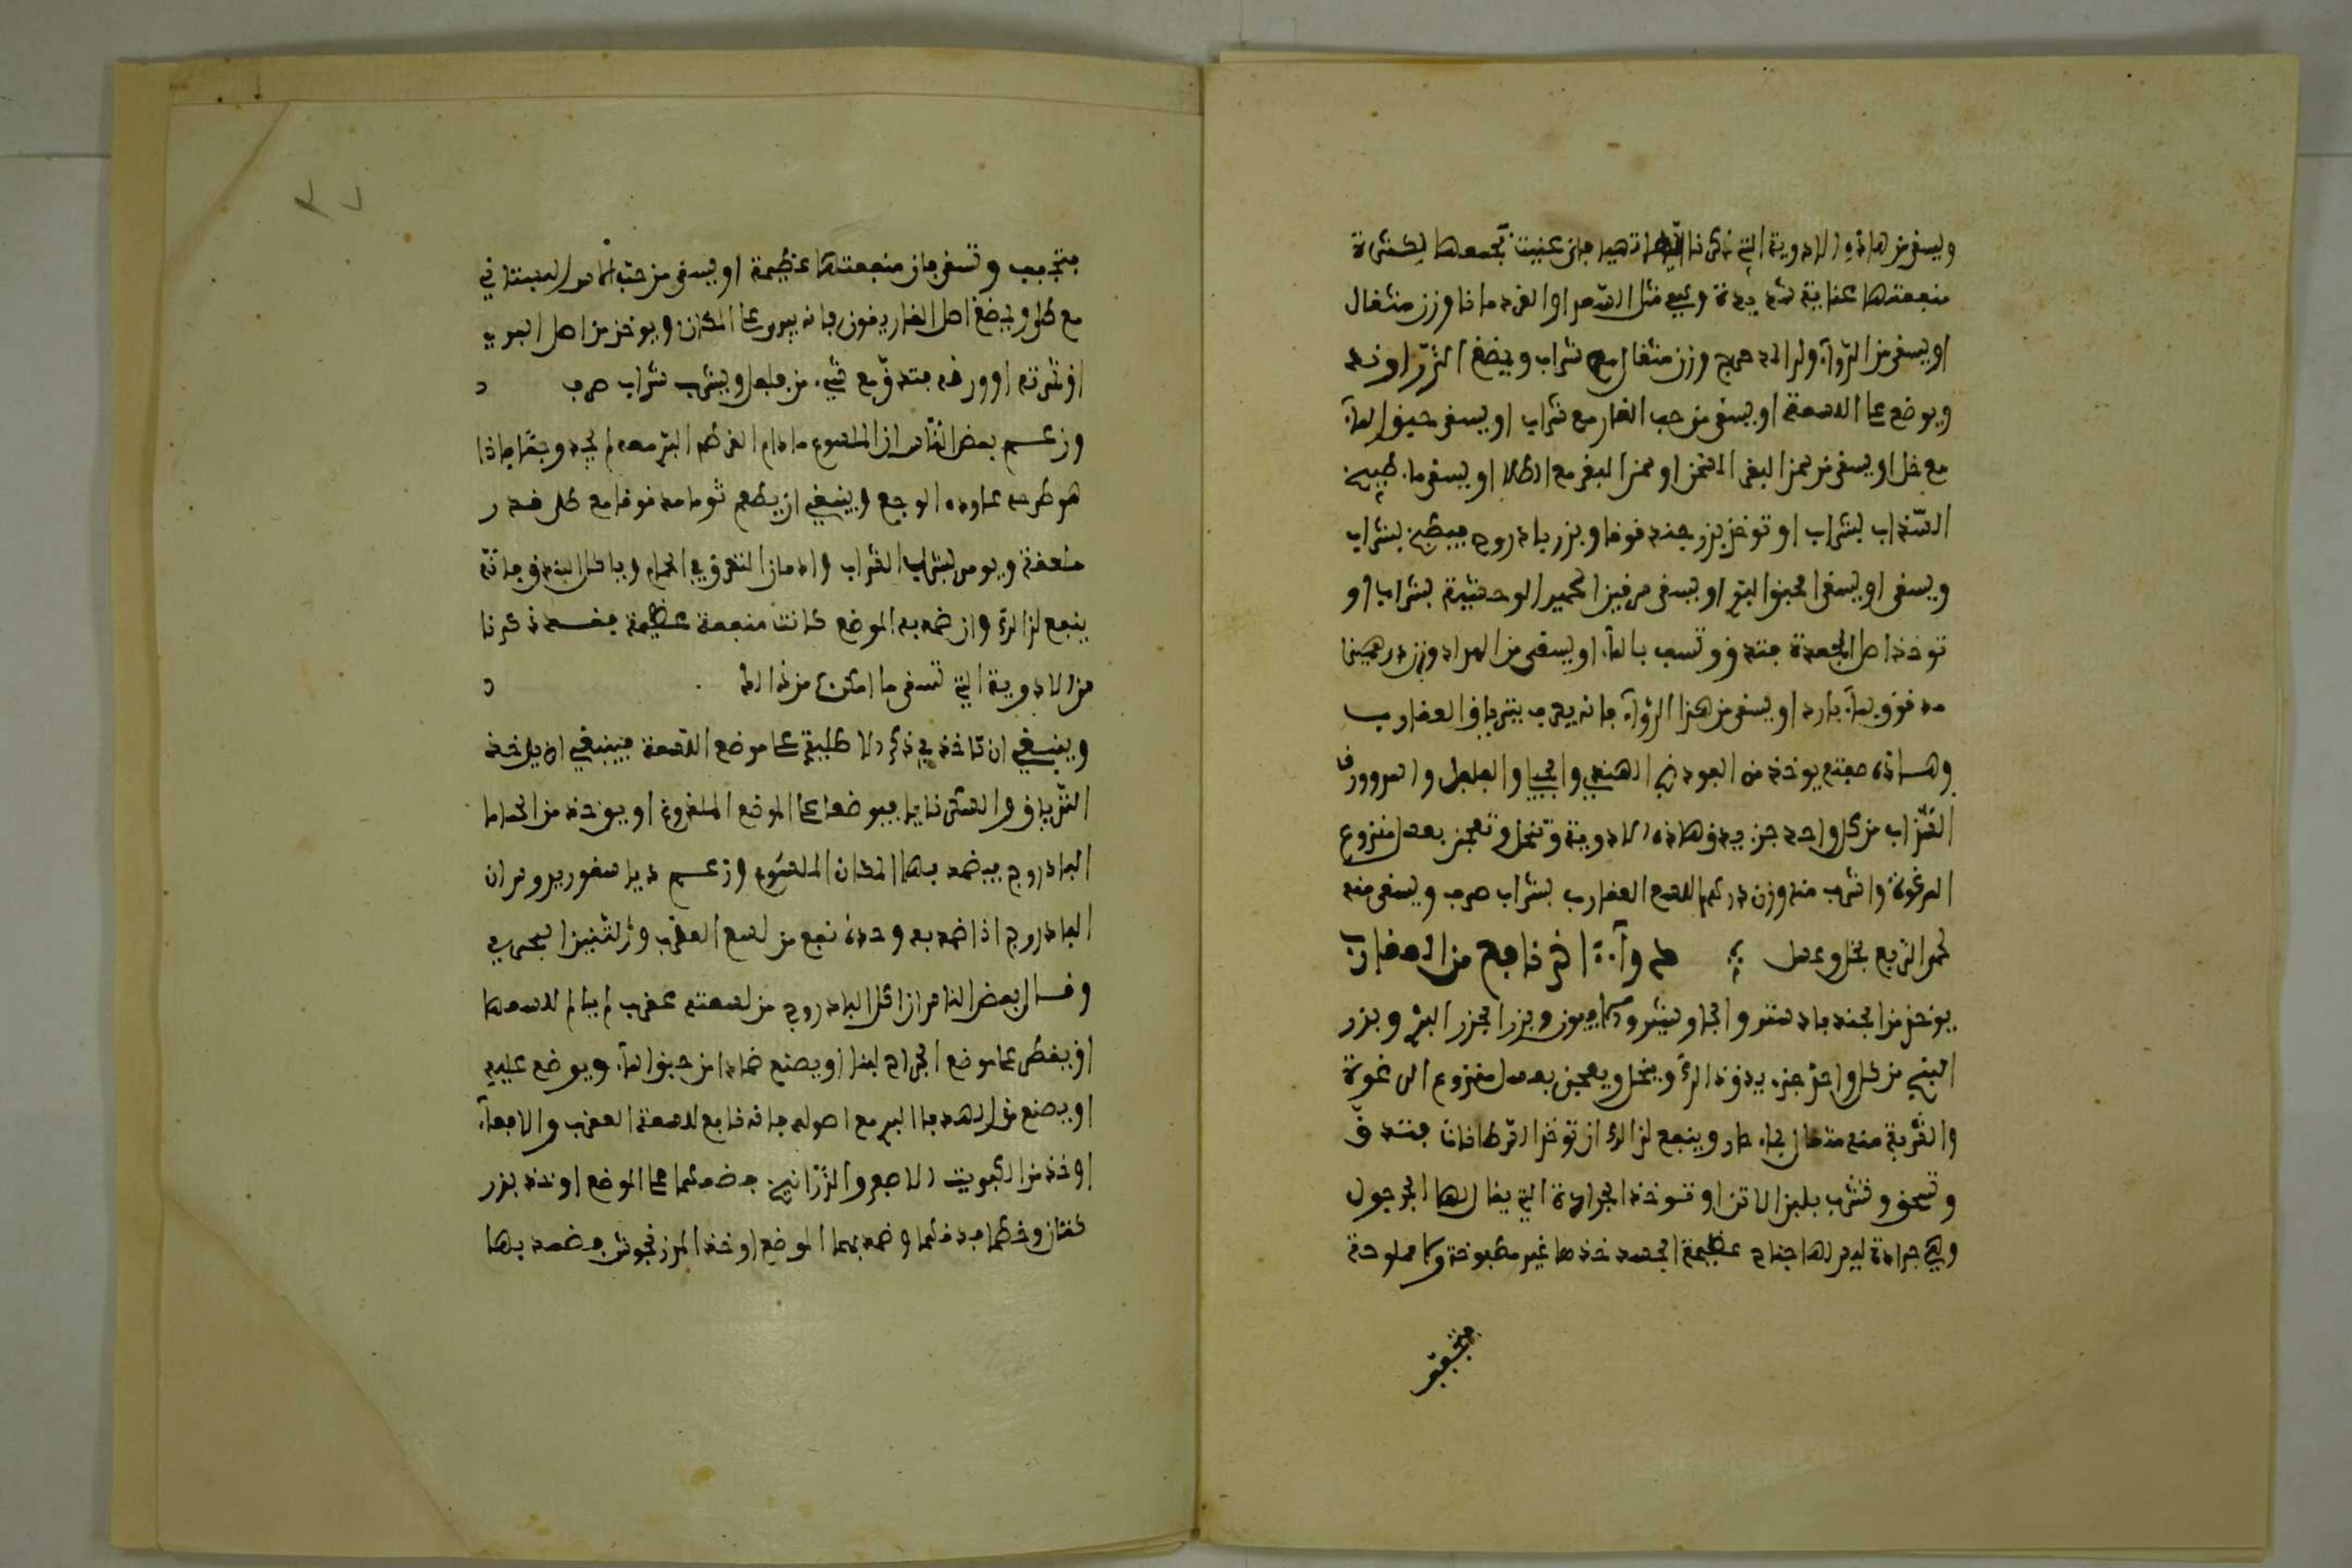 وليسقى من هاذه الادوية التي ذكرنا فإني عنيت بجمعها لكثرة
منفعتها عناية شديدة وهي مثل الفردمانا وزن مثقال
او يسقى من الزراوند المدحرج وزن مثقال مع شراب ويمضغ الزراوند
ويوضع على اللسعة او يسقى من حب الغار مع شراب او يسقى حبق الماء
مع خل او يسقى من لبن البقر مع الطلا او يسقى ماء طبيخ
السذاب بشراب او توخذ بزر حندقوقا وبزر باذروج فيطبخ بشراب
ويسقى او يسقى او يسقى من الحمير الوحشية بشراب او
توخذ اصل الجعدة فتدق وتسف بالماء او يسقى من وزن درهمين
مدقوق بماء بارد او يسقى من هذا الدواء فانه يعرف بترياق العقارب
وهاذه صفته يوخذ من العود الهندي والفلفل
من كل واحد جزء يدق هاذه الادوية وتنخل وتعجن بعسل منزوع
الرغوة واشرب منه وزن درهم للسع العقارب بشراب صرف ويسقى منه
لحمى الربع بخل وعسل دواء اخر نافع من العقارب
يوخذ من الجندبادستر والجاوشير وبزر الجزر البري وبزر
البنج من كل واحد جزء يدق ذلك وينخل ويعجن بعسل منزوع الرغوة
والشربة منه مثقال بماء حار وينفع لذلك ان توخذ السرطانات فتدق
وتسحق وتشرب بلبن الاتن او توخذ الجرادة التي يقال لها الجرجول
وهي جرادة ليس لها جناح عظيمة الجسد خذها غير مطبوخة ولا مملوحة
فتجفف
فتجفف وتسقى فان منفعتها عظيمة او يسقى من حب البستاني
مع طلا ويمضغ اصل الغاريقون فانه يبرد على المكان ويوخذ من اصل البري
او ثمرته او ورقه فتدق مع شيء من فلفل ويشرب شراب صرف
وزعم بعض الناس ان الملسوع مادام القرطم البري معه لم يجد وجعا فاذا
هو طرحه عاوده الوجع وينبغي ان يطعم ثوما مدقوقا مع طلا قدر
ملعقة ويومر بشراب الشراب وادمان التعرق في الحمام وباكل البندق فانه
ينفع لذلك وان ضمد به الموضع كانت منفعة عظيمة فقد ذكرنا
من الادوية التي تسقى ما امكن من ذلك
وينبغي ان ناخذ في ذكر الاطلية على موضع اللسعة فينبغي ان ياخذ
الترياق فيوضع على الموضع الملدوغ او يوخذ من الحماما
الباذروج فيضمد بها المكان الملسوع وزعم دياسقوريدوس ان
الباذروج اذا ضمد به وحده نفع من لسع العقرب والتنين البحري
وقال بعض الناس ان اكل الباذروج من لسعته عقرب لم يبال لسعها
او يقطر على موضع الجراح لبنا او يصنع ضماد من حبق الماء ويوضع عليه
او يصنع من الهندبا البري مع اصوله فانه نافع للسعة العقرب والافعاء
او خذ من الكبريت الاصفر والزرانيخ فضعهما على الموضع او خذ بزر
كتان وخطما فدقهما وضمد بهما الموضع او خذ المرزنجوش فضمد بها